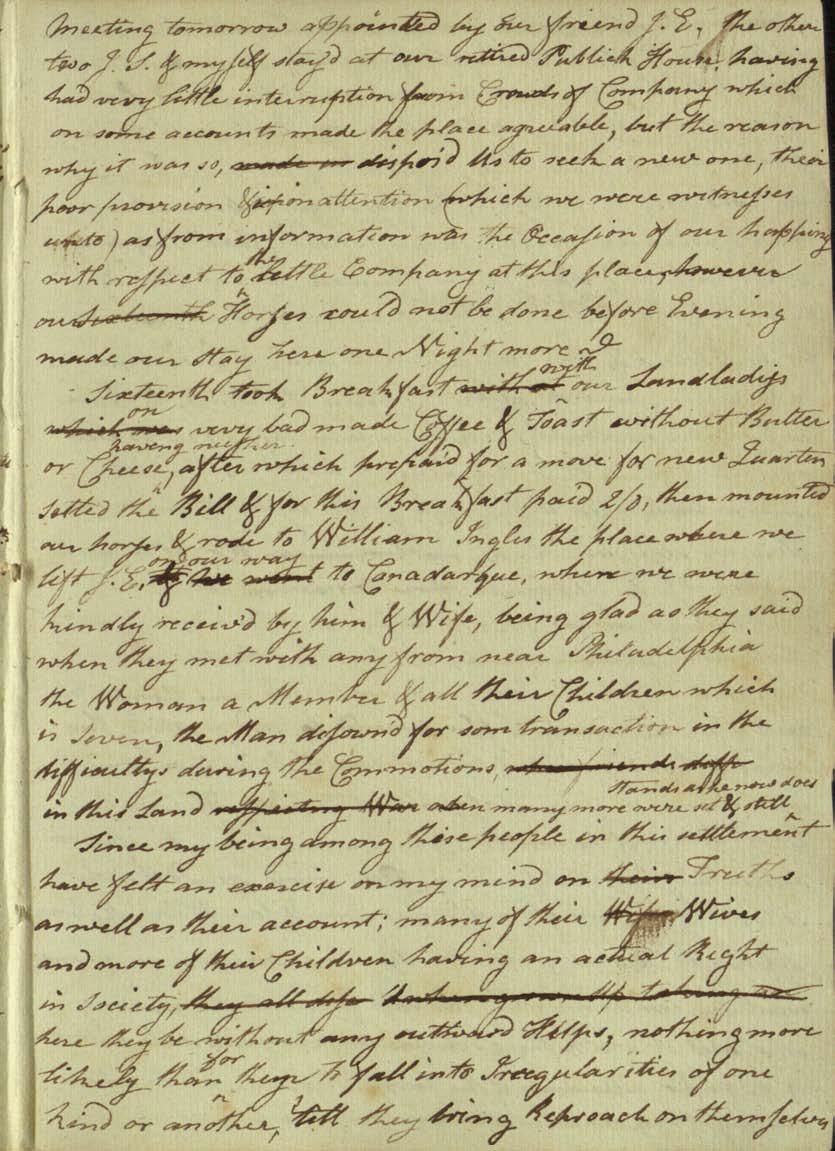 Meeting tomorrow appointed by our friend J. E. the other
two J. S. & myself stay'd at our retired Publick House, having
had very little interruption from Crowds of Company which
on some accounts made the place agreeable, but the reason
why it was so, made in dispos'd Us to seek a new one, their
poor provision & attention (which we were witnesses
unto) as from information was the Occasion of our happing
with respect to the little Company at this place, however
our Sixteenth Horses could not be done before Evening
made our stay here one Night more
Sixteenth took Breakfast with our Landladys
with
which was very bad made Coffee & Toast without Butter
on
or Cheese, after which prepaid for a move for new Quarters
having neither
setted the Bill & for this Breakfast paid 2/0, then mounted
our horses & rode to William Ingles the place where we
left J. E. & we went to Canadarque, where we were
on our way
kindly receiv'd by him & Wife, being glad as they said
when they met with any from near Philadelphia
the Woman a Member & all their Children which
is Seven, the Man disownd for som transaction in the
difficultys during the Commotions, when friends
in this Land respecting War when many more were set & still
stands as he now does
Since my being among these people in this settlement
have felt an exercise on my mind on their Truths
as well as their account; many of their Wives
and more of their Children having an actual Right
in Society, they all up taking
here they be without any outward Helps, nothing more
likely than they to fall into Irregularities of one
for
kind or another, till they bring Reproach on themselves